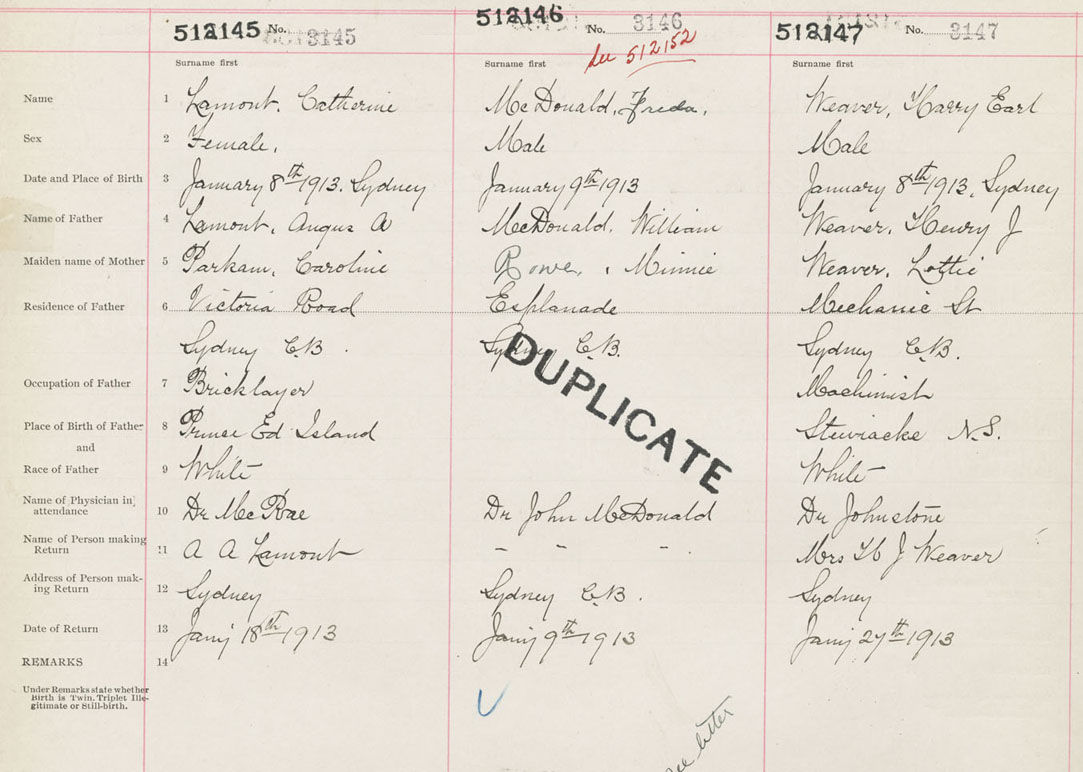 512145 No. 3145
512146 No. 3146
512147 No. 3147
See 512152
Surname first Surname first Surname first
Name 1 Lamont, Catherine McDonald, Freda, Weaver, Harry Earl
Sex 2 Female, Male Male
Date and Place of Birth 3 January 8th 1913. Sydney January 9th 1913 January 8th 1913, Sydney
Name of Father 4 Lamont, Angus A McDonald, William Weaver, Henry J
Maiden name of Mother 5 Parkam, Caroline Rowe, Minnie Weaver, Lottie
Residence of Father 6 Victoria Road Esplanade Mechanic St
Sydney C.B. Sydney C.B. Sydney C.B.
Occupation of Father 7 Bricklayer Machinist
DUPLICATE
Place of Birth of Father 8 Prince Ed Island Stewiacke N.S.
and
Race of Father 9 White White
Name of Physician in
attendance 10 Dr McRae Dr John McDonald Dr Johnstone
Name of Person making
Return 11 A A Lamont - " - Mrs H J Weaver
Address of Person mak-
ing Return 12 Sydney Sydney C.B. Sydney
Date of Return 13 Jany 18th 1913 Jany 9th 1913 Jany 27th 1913
REMARKS 14
Under Remarks state whether
Birth is Twin, Triplet Ille-
gitimate or Still-birth.
letter